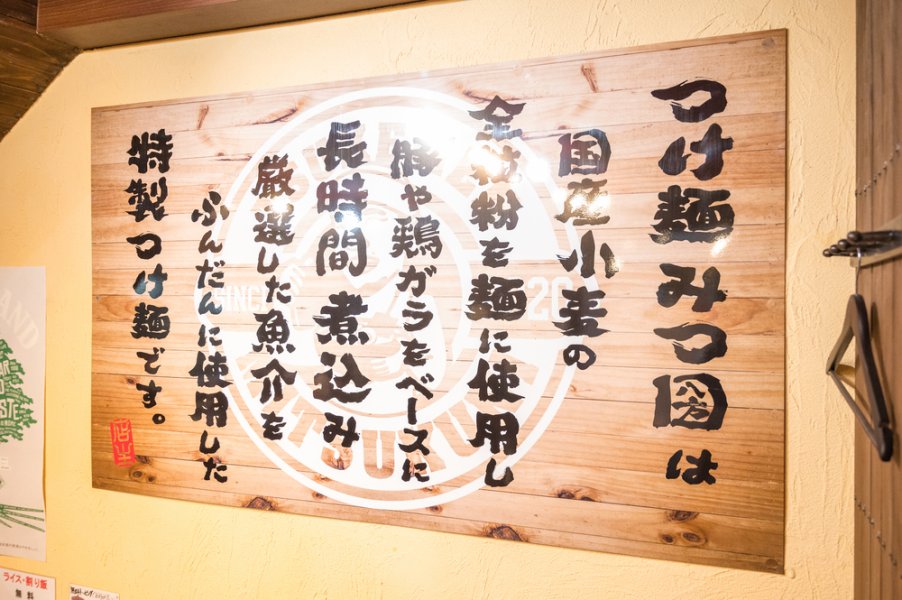 つけ麺みつ圀は
国産小麦の
全粒粉を麺に使用し
豚や鶏ガラをベースに
長時間煮込み
厳選した魚介を
ふんだんに使用した
特製つけ麺です。
店主
SINCE
20
AND
ライス・割り飯
無料